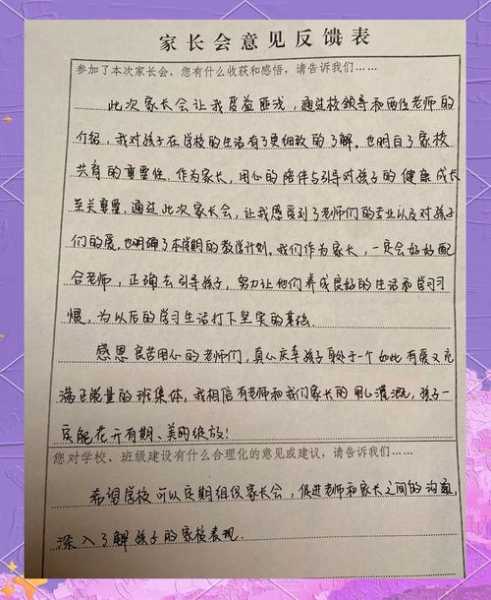 家长会意见反馈表
参加了本次家长会，您有什么收获和感悟，请告诉我们……
此次家长会让我受益匪浅，通过校领导和两位老师的
介绍，我对孩子在学校的生活有了更细致的了解。也明白了家校
共育的重要性。作为家长，用心的陪伴与引导对孩子的健康成长
至关重要，通过此次家长会，让我感受到了老师们的专业以及对孩子
们的爱，也明确了本学期的教学计划。我们作为家长，一定会好好配
合老师，正确去引导孩子，努力让他们养成良好的生活和学习习
惯，为以后的学习生活打下坚实的基础.
感恩良苦用心的老师们，真心庆幸孩子身处于一个如此有爱又充
满正能量的班集体，我相信有老师和我们家长的用心灌溉，孩子一
定能花开有期、美丽绽放！
您对学校、班级建设有什么合理化的意见或建议，请告诉我们……
希望学校可以定期组织家长会，促进老师和家长之间的沟通，
深入了解孩子的家校表现.